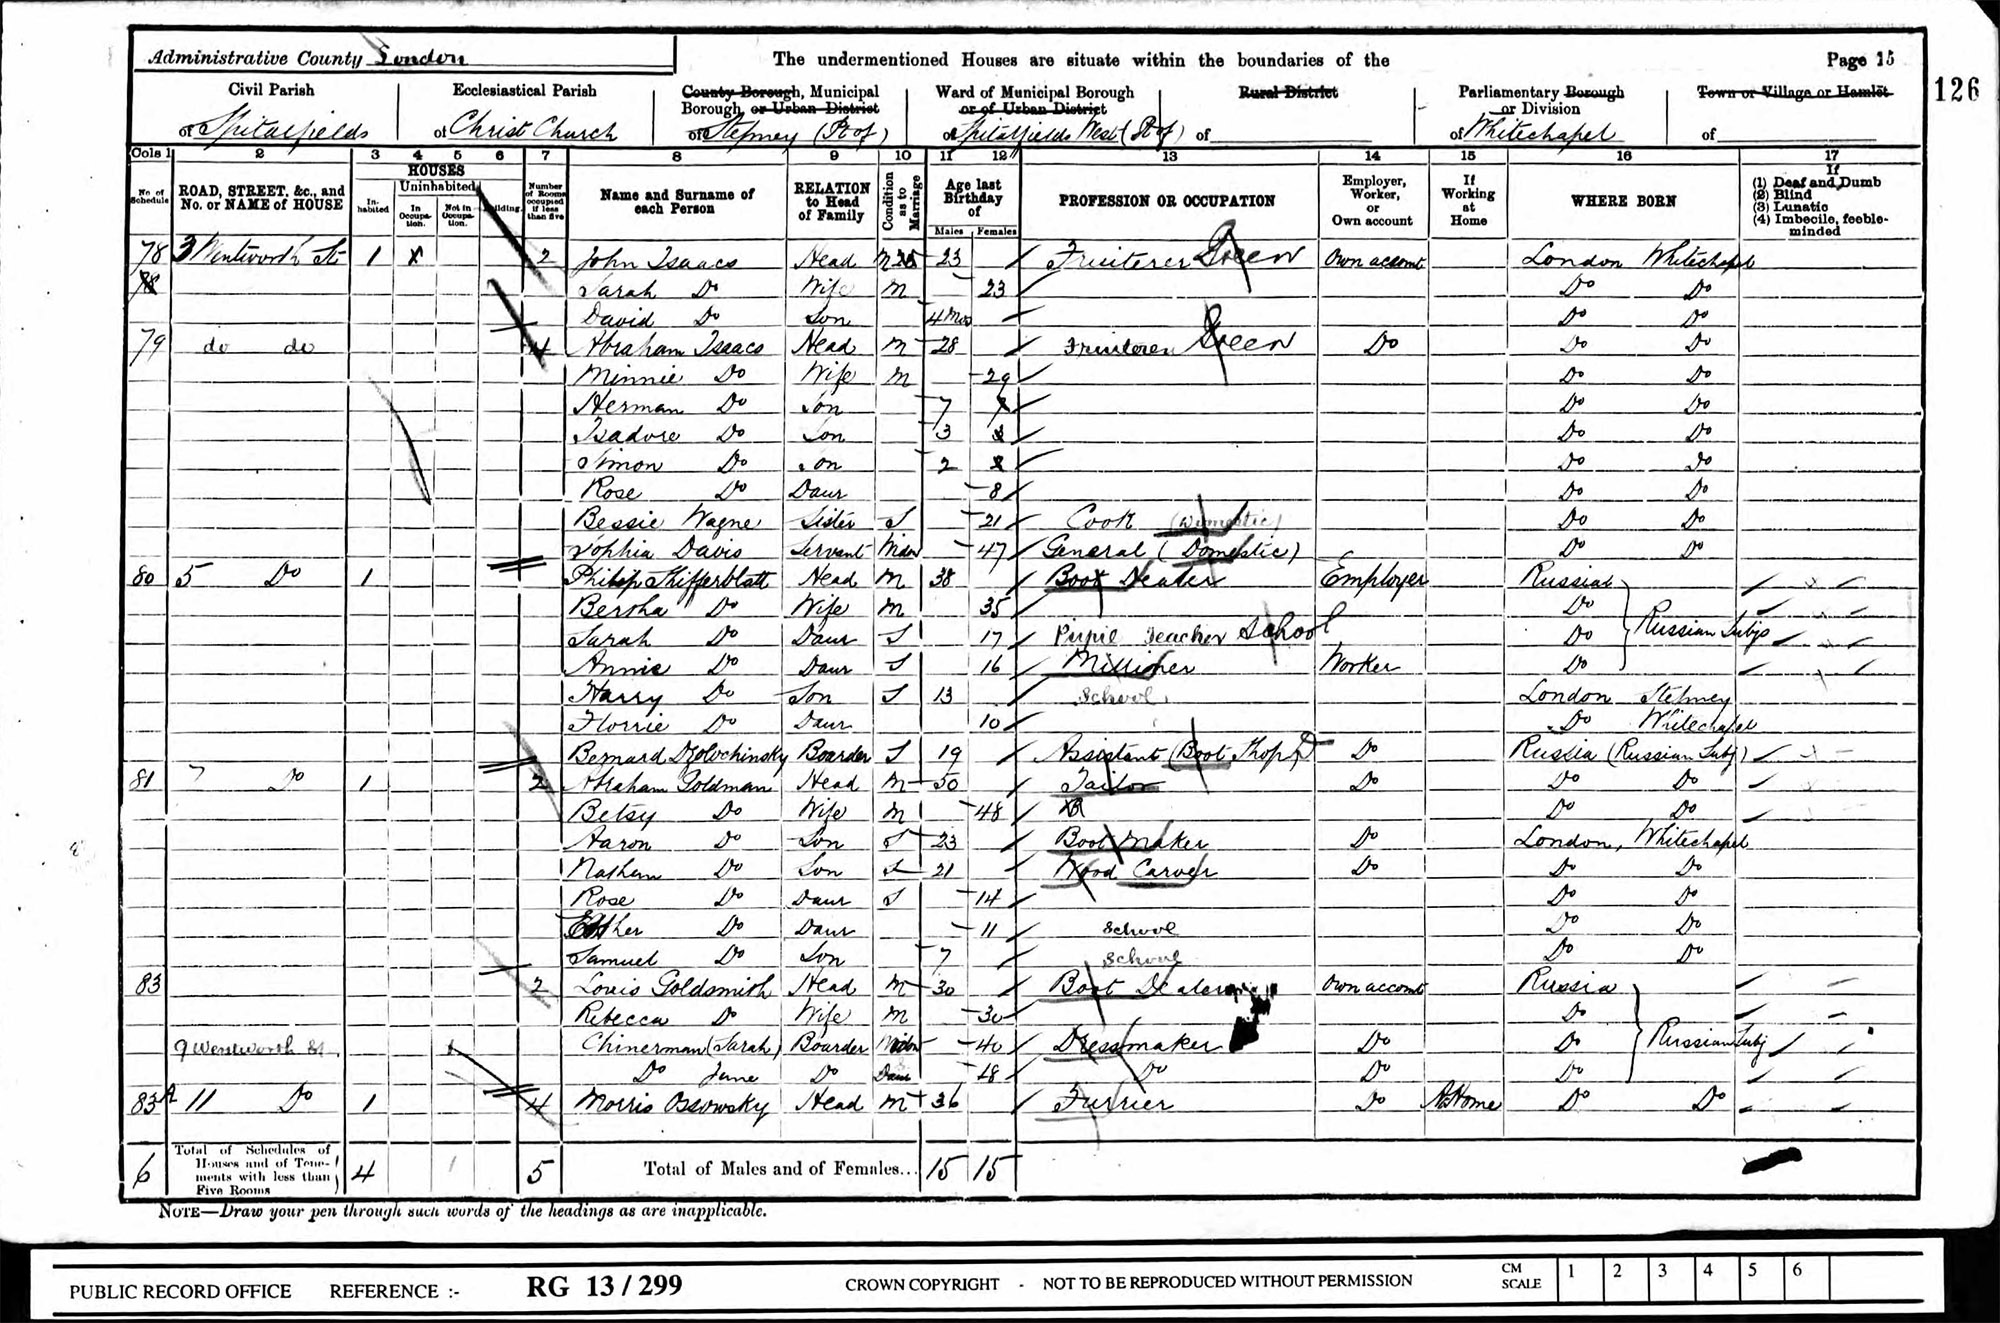 Administrative County London
The undermentioned Houses are situate within the boundaries of the
Page 15
126
Civil Parish
of Spitalfields
Ecclesiastical Parish
of Christ Church
County Borough, Municipal
Borough, or Urban District
of Stepney (Pt of)
Ward of Municipal Borough
or of Urban District
of Spitalfields West (Pt of)
Rural District
of
Parliamentary Borough
or Division
of Whitechapel
Town or Village or Hamlet
of
Cols 1 2 3 4 5 6 7 8 9 10 11 12 13 14 15 16 17
No. of Schedule
ROAD, STREET, &c., and No. or NAME of HOUSE
HOUSES
Inhabited
Uninhabited
In Occupation.
Not in Occupation.
Building.
Number of Rooms occupied if less than five
Name and Surname of each Person
RELATION to Head of Family
Condition as to Marriage
Age last Birthday of
Males Females
PROFESSION OR OCCUPATION
Employer, Worker, or Own account
If Working at Home
WHERE BORN
If
(1) Deaf and Dumb
(2) Blind
(3) Lunatic
(4) Imbecile, feeble-minded
78 3 Wentworth St 1 x 2 John Isaacs Head M 23 Fruiterer Green Own account London Whitechapel
78 Sarah Do Wife M 23 Do Do
David Do Son 4 Mos Do Do
79 do do 4 Abraham Isaacs Head M 28 Fruiterer Green Do Do Do
Minnie Do Wife M 29 Do Do
Herman Do Son 7 7 Do Do
Isadore Do Son 3 3 Do Do
Simon Do Son 2 2 Do Do
Rose Do Daur 8 Do Do
Bessie Wagne Sister S 21 Cook (Domestic) Do Do
Sophia Davis Servant Widow 47 General (Domestic) Do Do
80 5 Do 1 Philip Shifferblatt Head M 38 Boot Dealer Employer Russia
Bersha Do Wife M 35 Do
Sarah Do Daur S 17 Pupil Teacher School Do Russian Subjs
Annie Do Daur S 16 Milliner Worker Do
Harry Do Son S 13 School London Stepney
Florrie Do Daur 10 Do Whitechapel
Bernard Boarder S 19 Assistant (Boot Shop) Do Russia (Russian Subj)
81 7 Do 1 2 Abraham Goldman Head M 50 Tailor Do Do Do
Betsy Do Wife M 48 Do Do
Aaron Do Son S 23 Boot Maker Do London, Whitechapel
Nathan Do Son S 21 Wood Carver Do Do Do
Rose Do Daur S 14 Do Do
Esther Do Daur 11 School Do Do
Samuel Do Son 7 School Do Do
83 2 Louis Goldsmith Head M 30 Boot Dealer Own account Russia
Rebecca Do Wife M 30 Do
9 Wentworth St 1 Chinerman (Sarah) Boarder Widow 40 Dressmaker Do Do Russian Subj
Do Jane Do Daur 18 Do Do Do
83A 11 Do 1 4 Morris Ossowsky Head M 36 Furrier Do At Home Do Do
6 Total of Schedules of Houses and of Tenements with less than Five Rooms 4 1 5 Total of Males and of Females... 15 15
NOTE—Draw your pen through such words of the headings as are inapplicable.
PUBLIC RECORD OFFICE REFERENCE :- RG 13 / 299 CROWN COPYRIGHT - NOT TO BE REPRODUCED WITHOUT PERMISSION CM SCALE 1 2 3 4 5 6